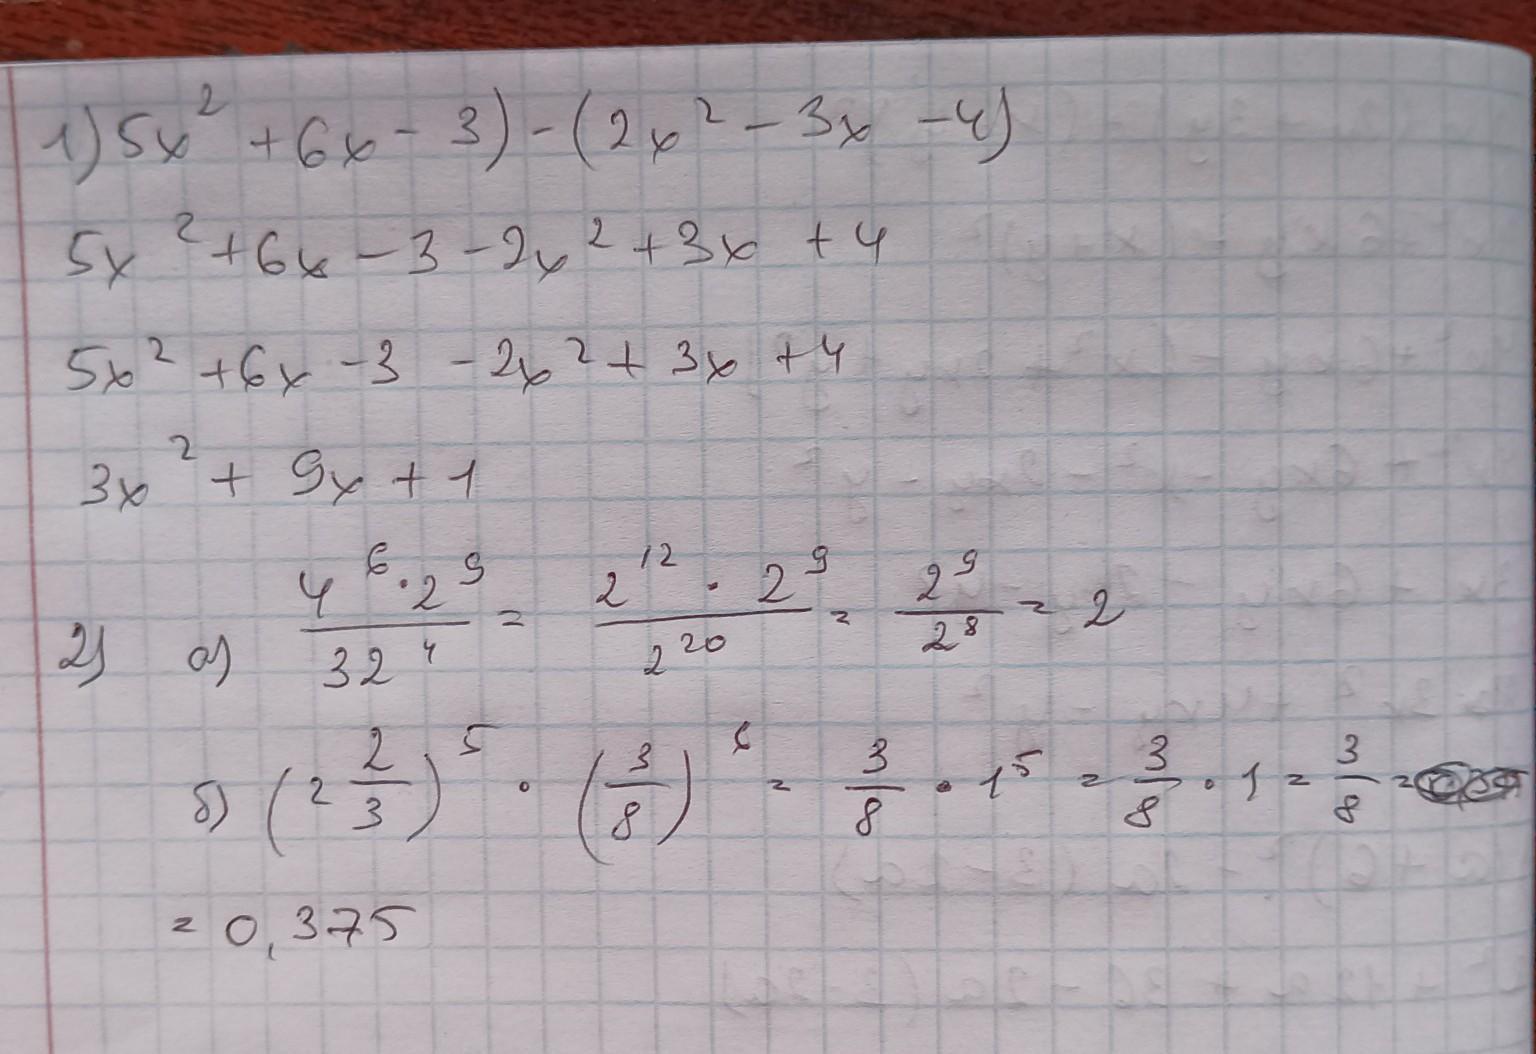 1) 5x² + 6x - 3) - (2x² - 3x - 4)
5x² + 6x - 3 - 2x² + 3x + 4
5x² + 6x - 3 - 2x² + 3x + 4
3x² + 9x + 1
2) а) (4⁶ · 2⁹)/(32⁴) = (2¹² · 2⁹)/(2²⁰) = 2⁹/2⁸ = 2
б) (2 2/3)⁵ · (3/8)⁶ = 3/8 · 1⁵ = 3/8 · 1 = 3/8 =
= 0,375